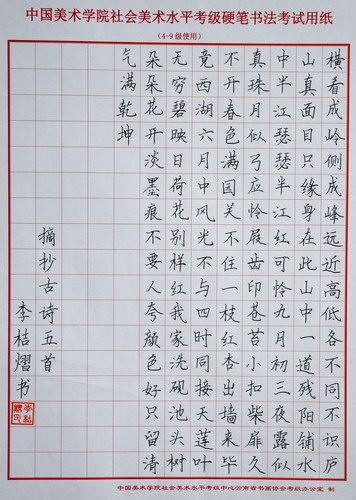 中国美术学院社会美术水平考级硬笔书法考试用纸
(4-9级使用)
横看成岭侧成峰远近高低各不同不识庐
山真面目只缘身在此山中一道残阳铺水
中半江瑟瑟半江红可怜九月初三夜露似
真珠月似弓应怜屐齿印苍苔小扣柴扉久
不开春色满园关不住一枝红杏出墙来毕
竟西湖六月中风光不与四时同接天莲叶
无穷碧映日荷花别样红我家洗砚池头树
朵朵花开淡墨痕不要人夸颜色好只留清
气满乾坤
摘抄古诗五首
李桔熠书
中国美术学院社会美术水平考级中心云南省书画协会考级办公室 制